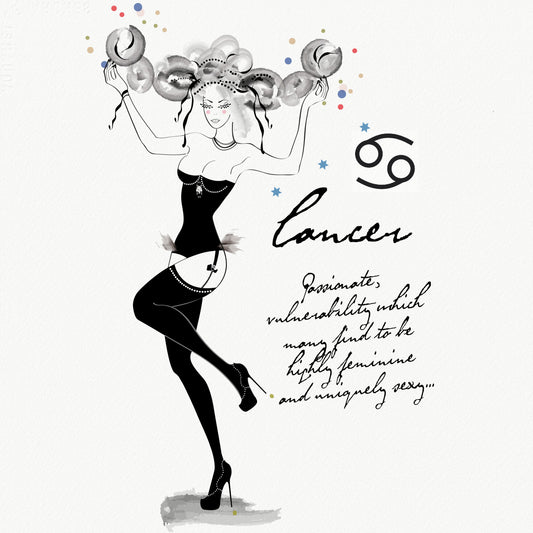 Cancer
Passionate,
vulnerability which
many find to be
highly feminine
and uniquely sexy...